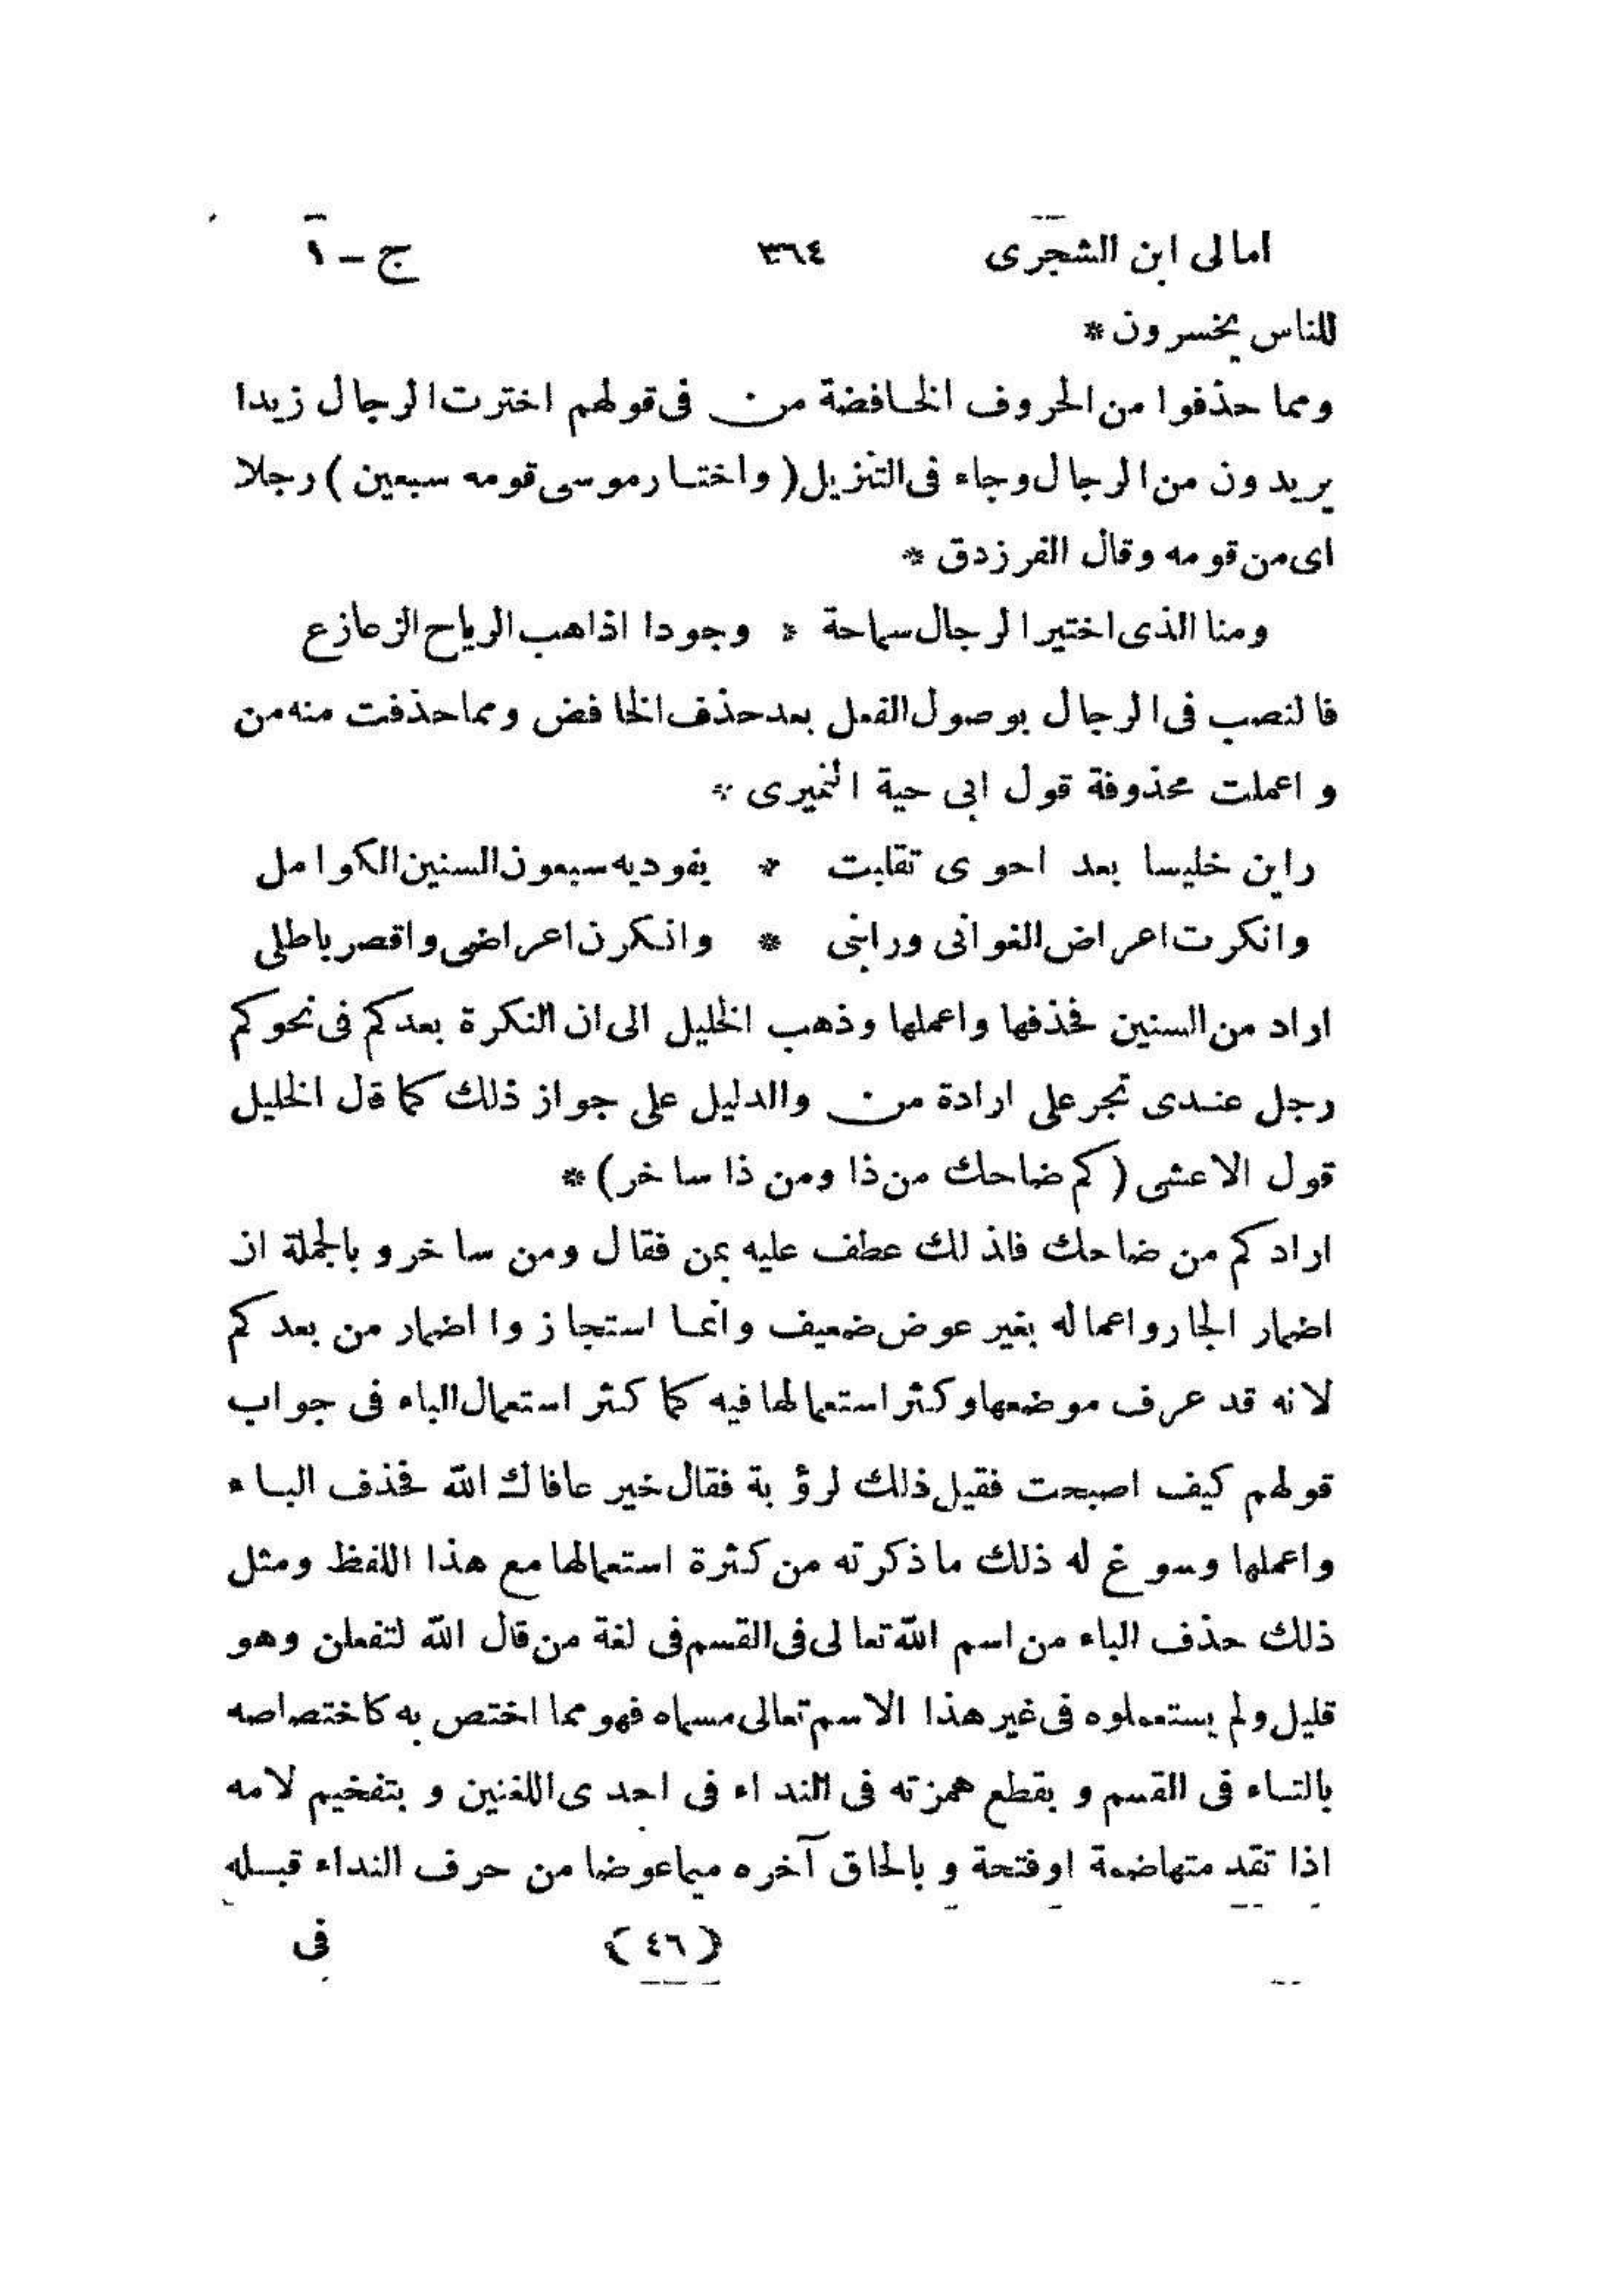 امالى ابن الشجرى ٣٦٤ ج – ١
للناس يخسرون *
ومما حذفوا من الحروف الخافضة من فى قولهم اخترت الرجال زيدا
يريدون من الرجال وجاء فى التنزيل ( واختار موسى قومه سبعين ) رجلا
اى من قومه وقال الفرزدق *
ومنا الذى اختير الرجال سماحة * وجودا اذا هب الرياح الزعازع
فالنصب فى الرجال بوصول الفعل بعد حذف الخافض ومما حذفت منه من
و اعملت محذوفة قول ابى حية النميرى *
راين خليسا بعد احوى تقلبت * بفوديه سبعون السنين الكوامل
وانكرت اعراض الغوانى ورابنى * وانكرن اعراضى واقصر باطلى
اراد من السنين فحذفها واعملها وذهب الخليل الى ان النكرة بعدكم فى نحوكم
رجل عندى تجر على ارادة من والدليل على جواز ذلك كما قال الخليل
قول الاعشى (كم ضاحك من ذا ومن ذا ساخر) *
اراد كم من ضاحك فلذلك عطف عليه بمن فقال ومن ساخر و بالجملة ان
اضمار الجار واعماله بغير عوض ضعيف وانما استجازوا اضمار من بعد كم
لانه قد عرف موضعها وكثر استعمالها فيه كما كثر استعمال الباء فى جواب
قولهم كيف اصبحت فقيل ذلك لرؤبة فقال خير عافاك الله فحذف الباء
واعملها وسوغ له ذلك ما ذكرته من كثرة استعمالها مع هذا اللفظ ومثل
ذلك حذف الباء من اسم الله تعالى فى القسم فى لغة من قال الله لتفعلن وهو
قليل ولم يستعملوه فى غير هذا الاسم تعالى مسماه فهو مما اختص به كاختصاصه
بالتاء فى القسم و بقطع همزته فى النداء فى احدى اللغتين و بتفخيم لامه
اذا تقدمتها ضمة اوفتحة و بالحاق آخره ميما عوضا من حرف النداء قبله
(٤٦) فى